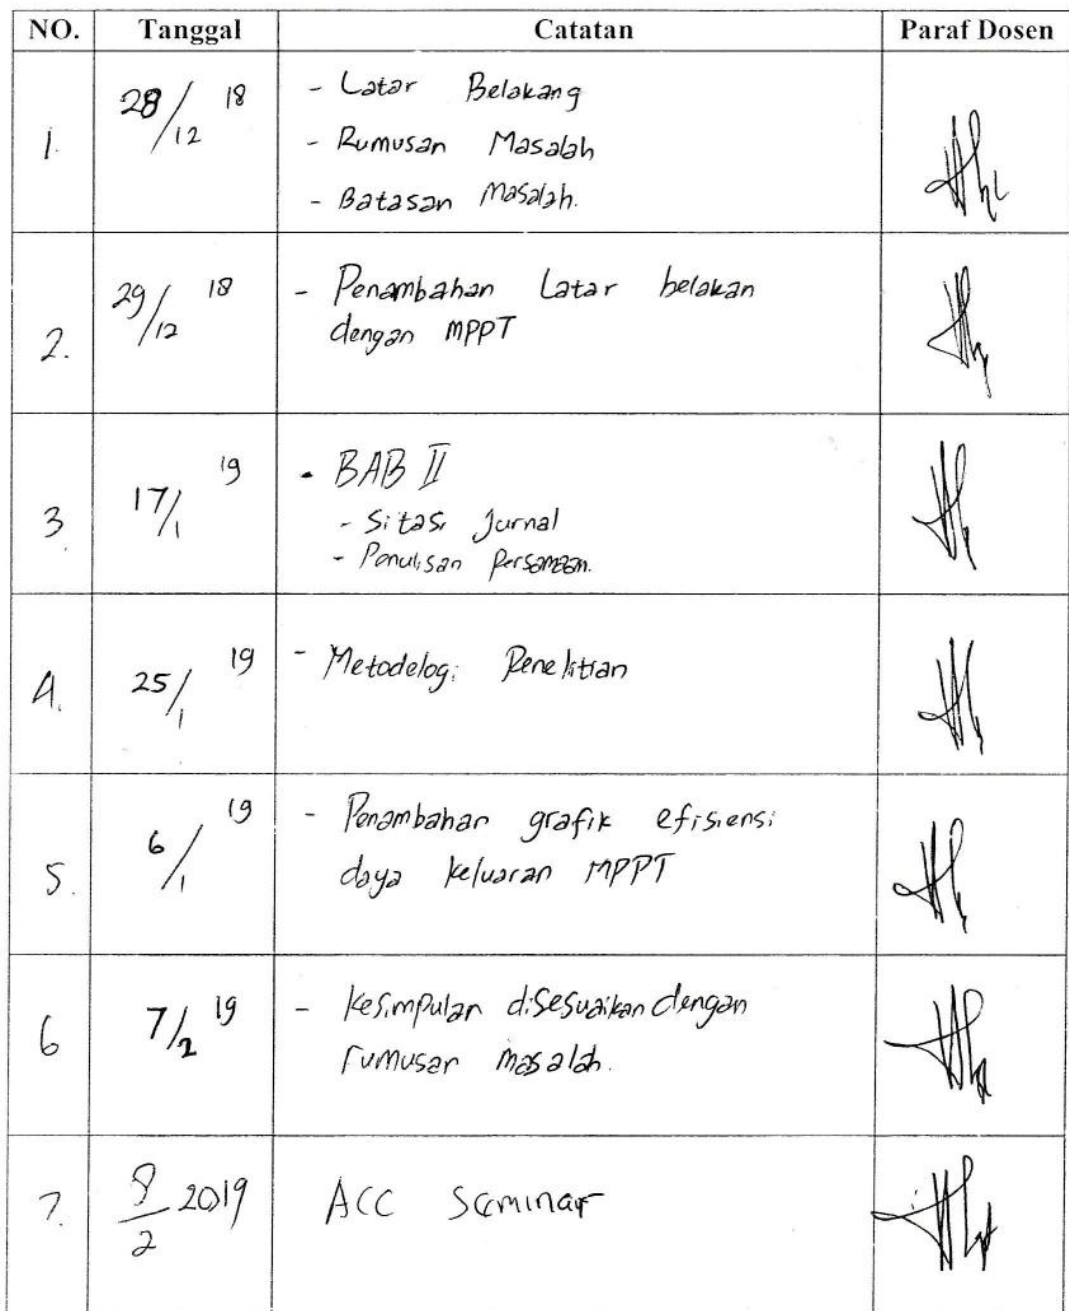 NO. Tanggal Catatan Paraf Dosen
1. 28/12 18 - Latar Belakang
- Rumusan Masalah
- Batasan Masalah.
2. 29/12 18 - Penambahan Latar belakan
dengan MPPT
3. 17/1 19 - BAB II
- Sitasi Jurnal
- Penulisan Persamaan.
4. 25/1 19 - Metodelogi Penelitian
5. 6/1 19 - Penambahan grafik efisiensi
daya keluaran MPPT
6 7/2 19 - Kesimpulan disesuaikan dengan
rumusan masalah.
7. 8/2 2019 ACC Seminar